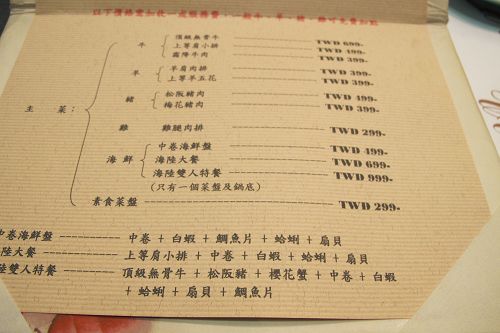 以下價格需加收一成服務費,一般牛、羊、豬、雞可免費加點
主 菜:
牛 頂級無骨牛 TWD 699-
上等肩小排 TWD 499-
霜降牛肉 TWD 399-
羊 羊肩肉排 TWD 399-
上等羊五花 TWD 399-
豬 松阪豬肉 TWD 499-
梅花豬肉 TWD 399-
雞 雞腿肉排 TWD 299-
海鮮 中卷海鮮盤 TWD 499-
海陸大餐 TWD 699-
海陸雙人特餐 TWD 999-
(只有一個菜盤及鍋底)
素食菜盤 TWD 299-
中卷海鮮盤 中卷 + 白蝦 + 鯛魚片 + 蛤蜊 + 扇貝
海陸大餐 上等肩小排 + 中卷 + 白蝦 + 蛤蜊 + 扇貝
海陸雙人特餐 頂級無骨牛 + 松阪豬 + 櫻花蟹 + 中卷 + 白蝦
+ 蛤蜊 + 扇貝 + 鯛魚片